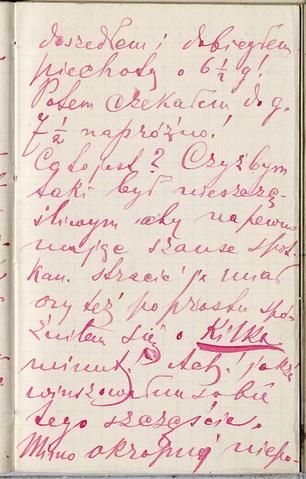 doszedłem i dobiegłem
piechotą o 6 ½ g!
Potem czekałem do g.
7 ½ napróżno!
Cóż to jest? Czyżbym
taki był nieszczę-
śliwym, aby napewno
mając szanse spot-
kan. stracić je miał
czy też po prostu spó-
źniłem się o kilka
minut! Ach! jakże
winszowałem sobie
tego szczęścia.
Mimo okropnej niepo-